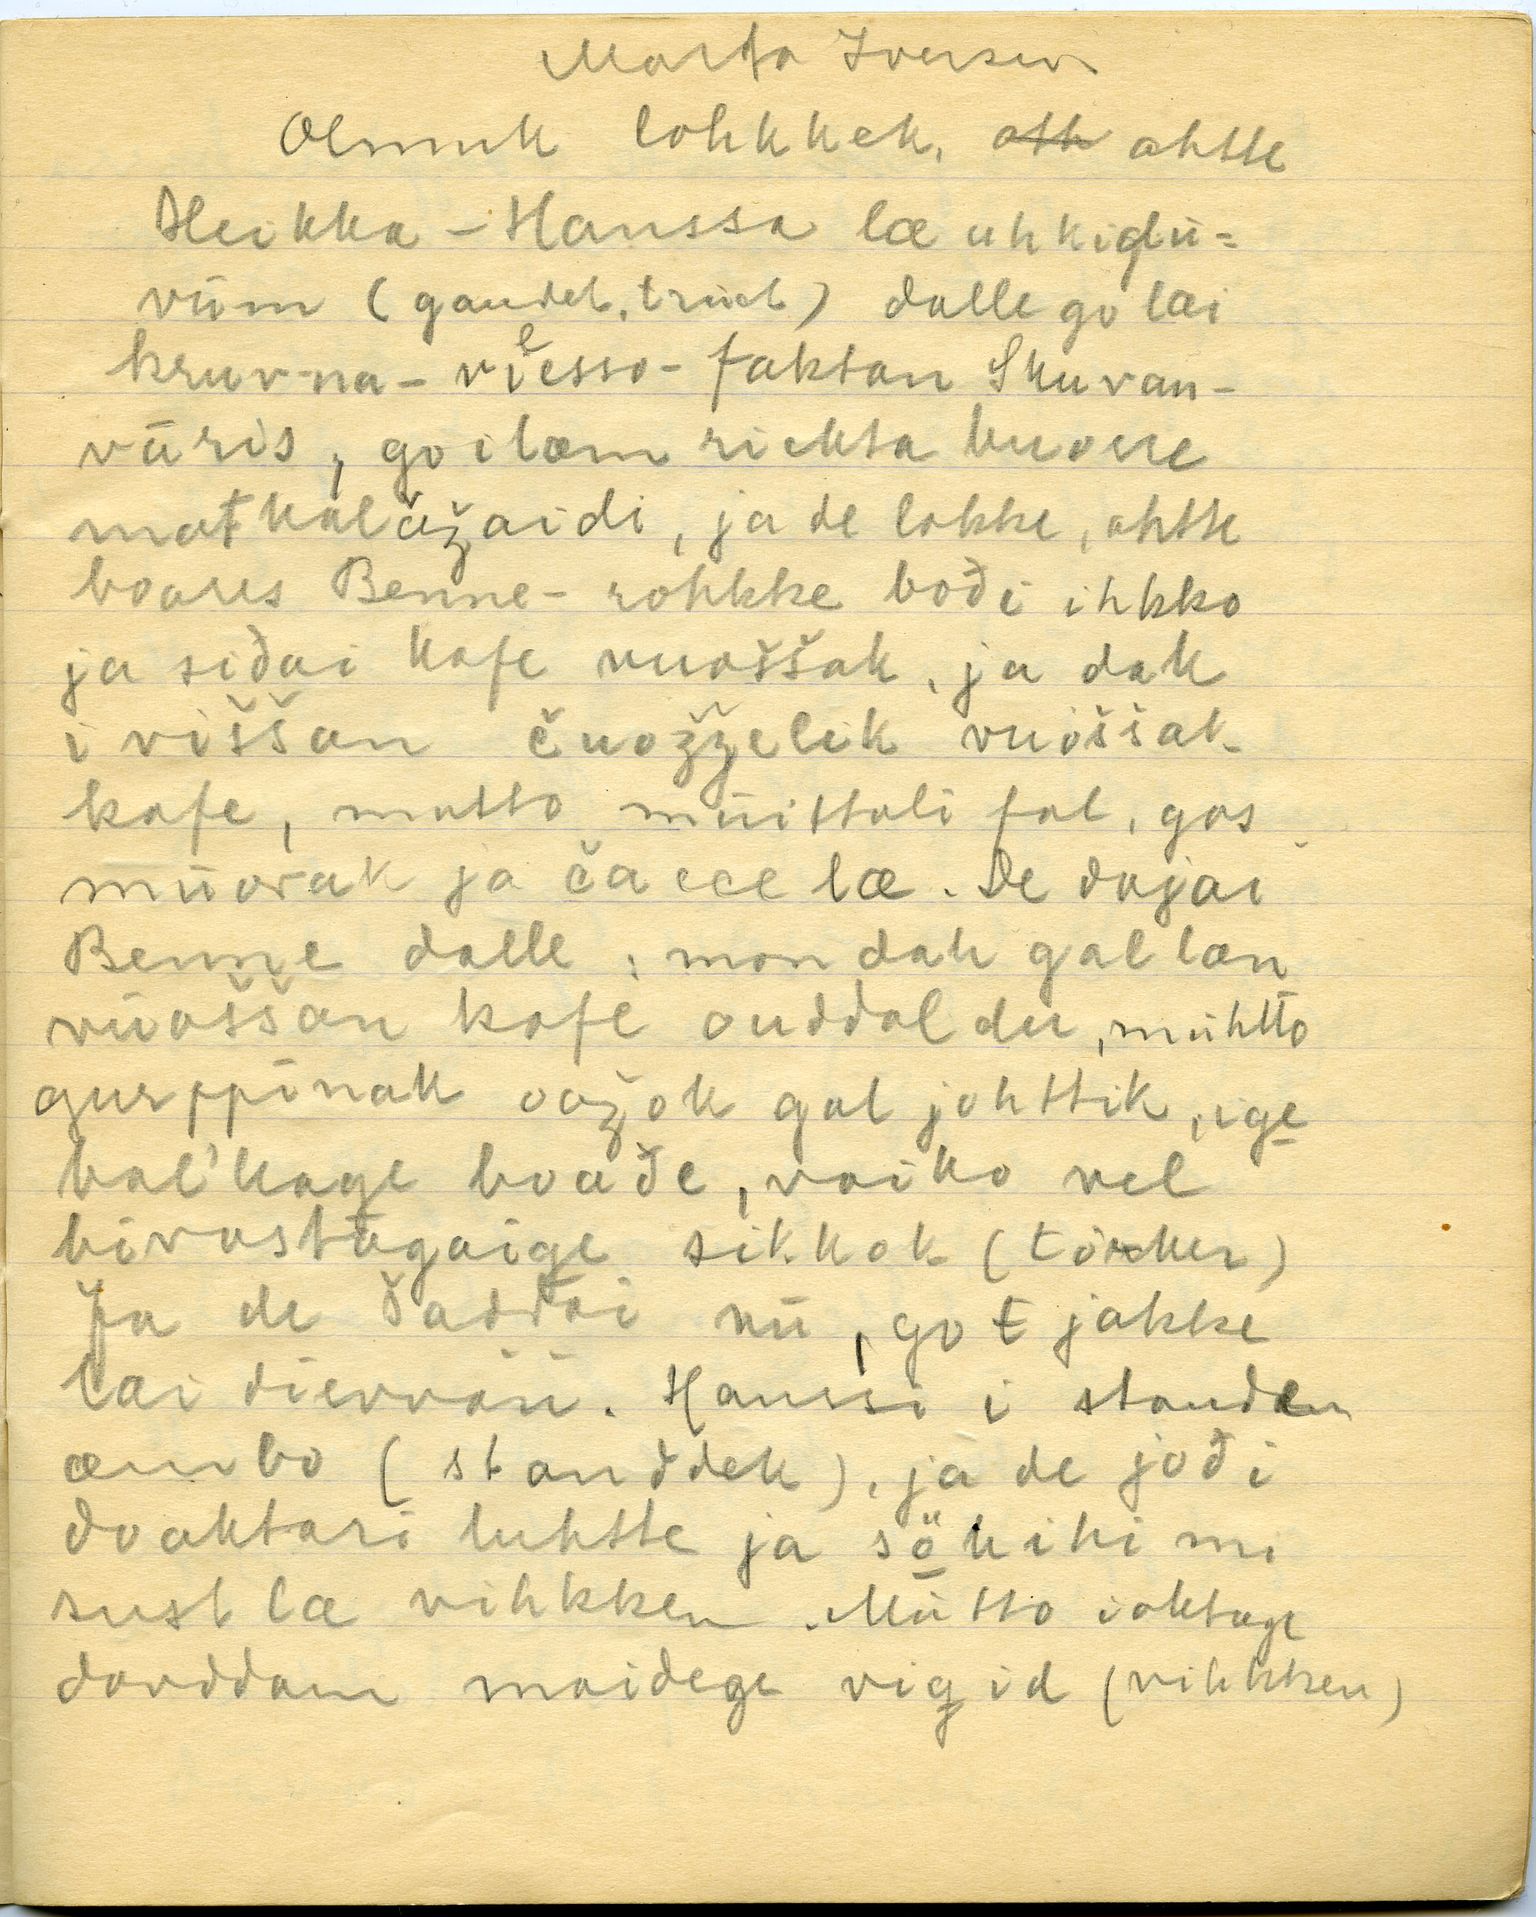 Marta Iversen
Olmuk lohkkek, ahtte
Heikka-Hanssa læ uhkiđu-
vüm (gaudet, truet) dalle go læi
kruvna-viesso-faktan Skuvan-
vāris, go i læm riekta buorre
matkalāʒaidi, ja de lokke, ahtte
boares Benne-rohkke bođi ihkko
ja siđai kafe vuoššak, ja dak
i viššan čuoǯǯelik vuoššak
kafe, mutto müittali fal, gos
müorak ja čacce læ. De dajai
Benne dalle: mon dak gal læn
vüoššan kafe ouddal du, mühtto
gurppinak oaʒok gal johttik, ige
bal'kage boađe, vaiko vel
bivastāgaige sikkok (törker)
Ja de šaddai nü, go t jakke
læi dievvān. Hanssi i standen
æmbo (standdek), ja de jođi
doaktari luhtte ja sökihi mi
sust læ vihkken. Mütto i oktage
dovddam maidege vigid (vihkken)